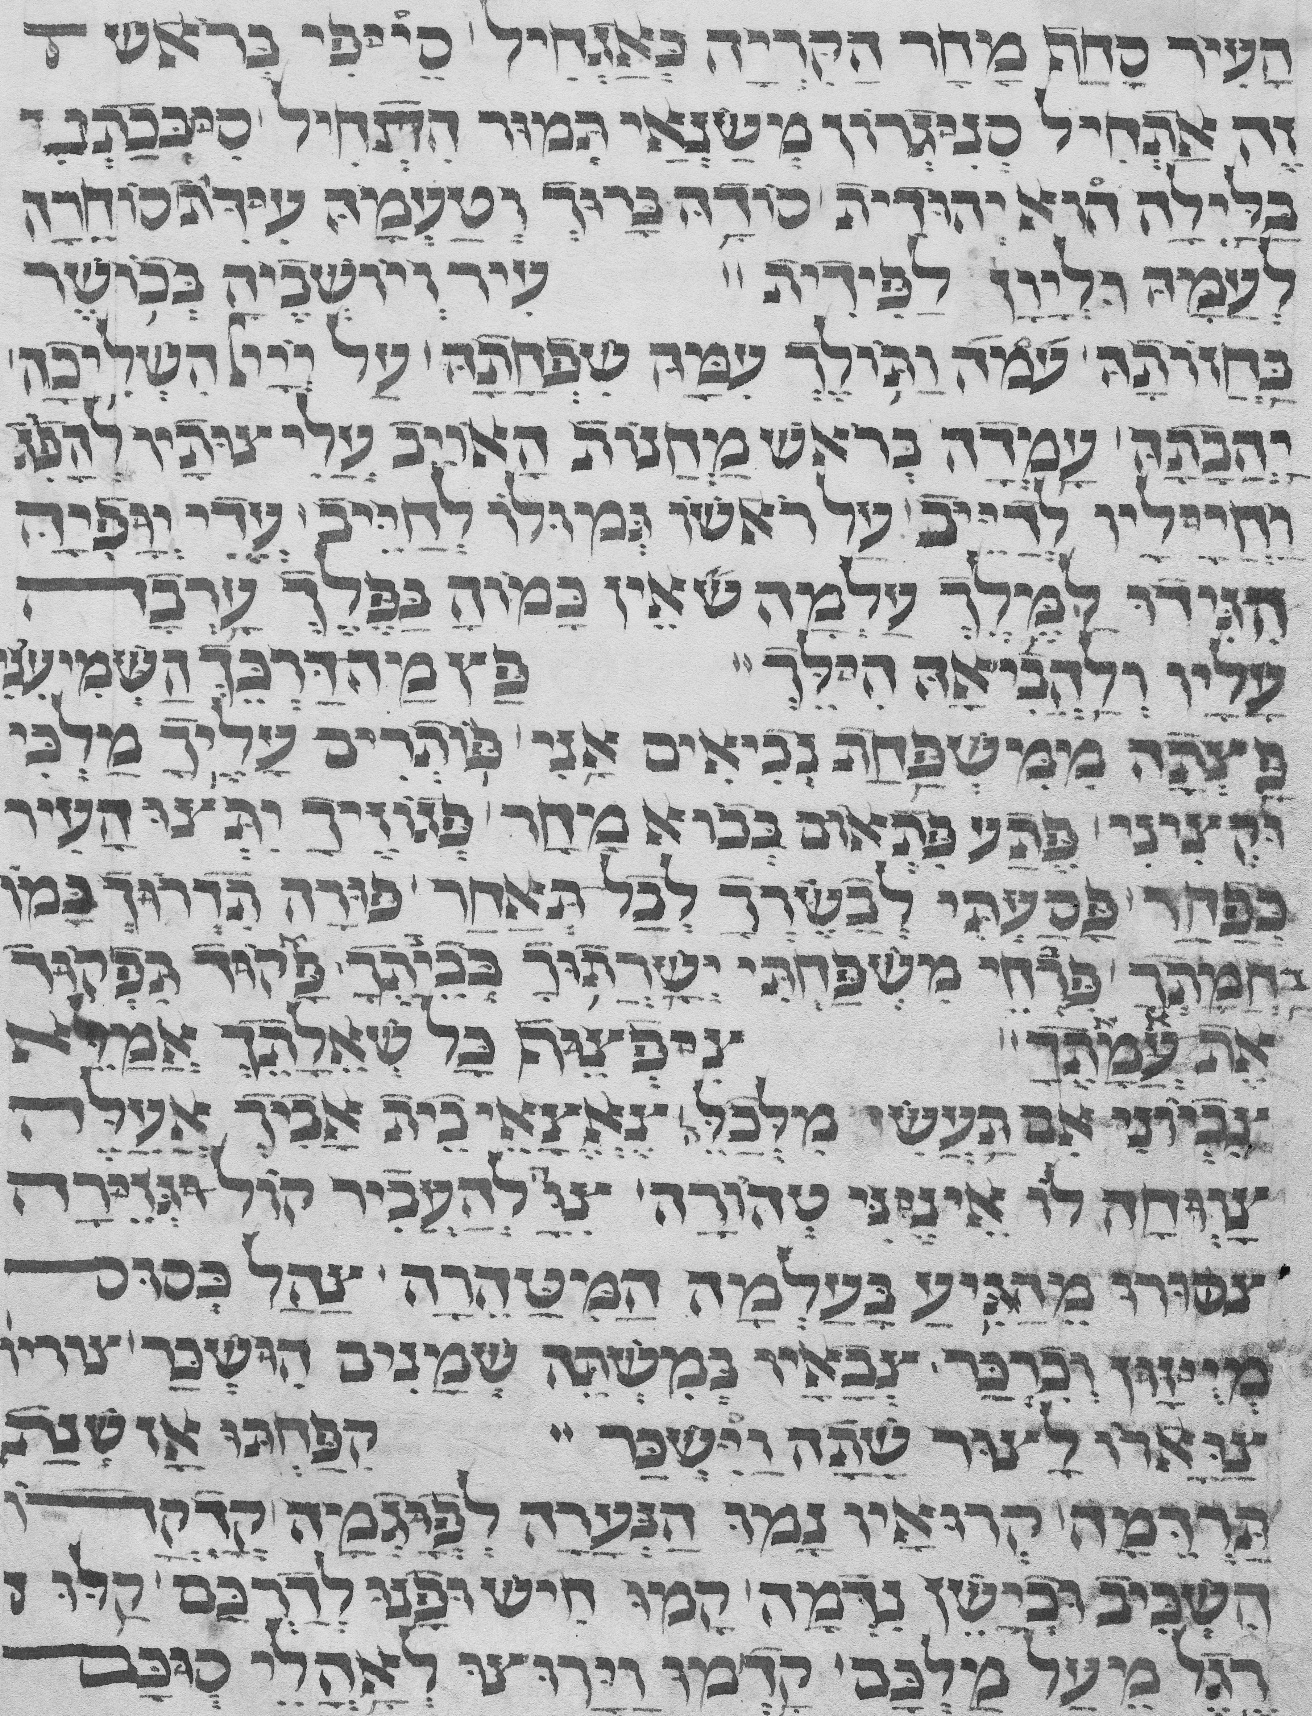 הָעִיר כָּחַת מָחָר הַקִּרְיָה כְּאַנְחִיל סַיְיבִי בְּרֹאשׁ
זֶה אַתְחִיל סְנִיגָרוֹן מִשַּׂנְאַי תְּמוּר הִתְחִיל סִיבְּכַתְבִי
בַּלַּיְלָה הוּא יְהוּדִית סוֹדָהּ בָּרוּךְ וְטַעֲמָהּ עִידִית סוֹחֲרָה
לְעַמָּהּ וּלְיָוָן לַבִּידִית עִיר וְיוֹשְׁבֶיהָ בְּכוֹשֶׁר
בְּחָזוּתָהּ עִמָּהּ וַתּוֹלֶךְ עִמָּהּ שִׁפְחָתָהּ עַל יְיָ הִשְׁלִיכָה
יְהָבָתָהּ עָמְדָה בְּרֹאשׁ מַחֲנוֹת הָאוֹיֵב עֲלֵי צִוֹּתָיו לְהַפֵּג
וַחֲיָילָיו לְדַיֵּיב עַל רֹאשׁוֹ גְּמוּלוֹ לְחַיֵּיב עֲדִי יוֹפְיָהּ
הִגִּידוּ לַמֶּלֶךְ עַלְמָה שֶׁאֵין כָּמוֹהָ בַּפֶּלֶךְ עָרְבָה
עָלָיו וְלַהֲבִיאָהּ הִילֵּךְ פָּץ מַה דַּרְכֵּךְ הַשְׁמִיעִנִי
פָּצְתָה מִמִּשְׁפַּחַת נְבִיאִים אָנִי פּוֹתְרִים עָלֶיךָ מַלְכִּי
וּקְצִינִי פֶּתַע פִּתְאוֹם בְּבוֹא מָחָר פְּגוּזֶיךָ יִתְּצוּ הָעִיר
כְּפַחַר פָּסַעְתִּי לְבַשֶּׂרְךָ לְבַל תְּאַחַר פּוּרָה תִּדְרוֹךְ כְּמוֹ
בַּחֲמָתָךְ פִּרְחֵי מִשְׁפַּחְתִּי יְשָׁרְתוּךָ בְּבֵיתָךְ פָּקוֹד תִּפְקוֹד
אֶת אֲמָתָךְ צִיפְצֵת כָּל שְׁאֵלָתֵךְ אֲמַלֵּא
צִבְיוֹנִי אִם תַּעֲשִׂי מִלְּכַלֵּ צֶאֱצָאֵי בֵית אָבִיךְ אַעֲלֶה
צָוְחָה לוֹ אֵינֶנִּי טְהוֹרָה צַו לְהַעֲבִיר קוֹל וּגְזֵירָה
צִפּוּרוֹ מֵהַגִּיעַ בָּעַלְמָה הַמִּטַּהֲרָה צָהַל כְּסוּס
מְיֻזָּן וְכִרְכֵּר צְבָאָיו בְּמִשְׁתֵּה שְׁמָנִים הוּשְׁכַּר צוֹרְיוֹ
צַוָּארוֹ לַצּוּר שָׁתָה וַיִּשְׁכַּר קִפְּחָתּוּ אָז שְׁנַת
תַּרְדֵּמָה קְרוּאָיו נָמוּ הַנַּעֲרָה לְפוּגְמָהּ קָדְקֳדוֹ
הִשְׁכִּיב וּכְיָשֵׁן נִדְמָה קָמוּ חִישׁ וּפָנוּ לְדַרְכָּם קַלּוּ
רֶגֶל מֵעַל מַלְכָּם קִדְּמוּ וְיָרוּצוּ לְאָהֳלֵי סֻכָּם